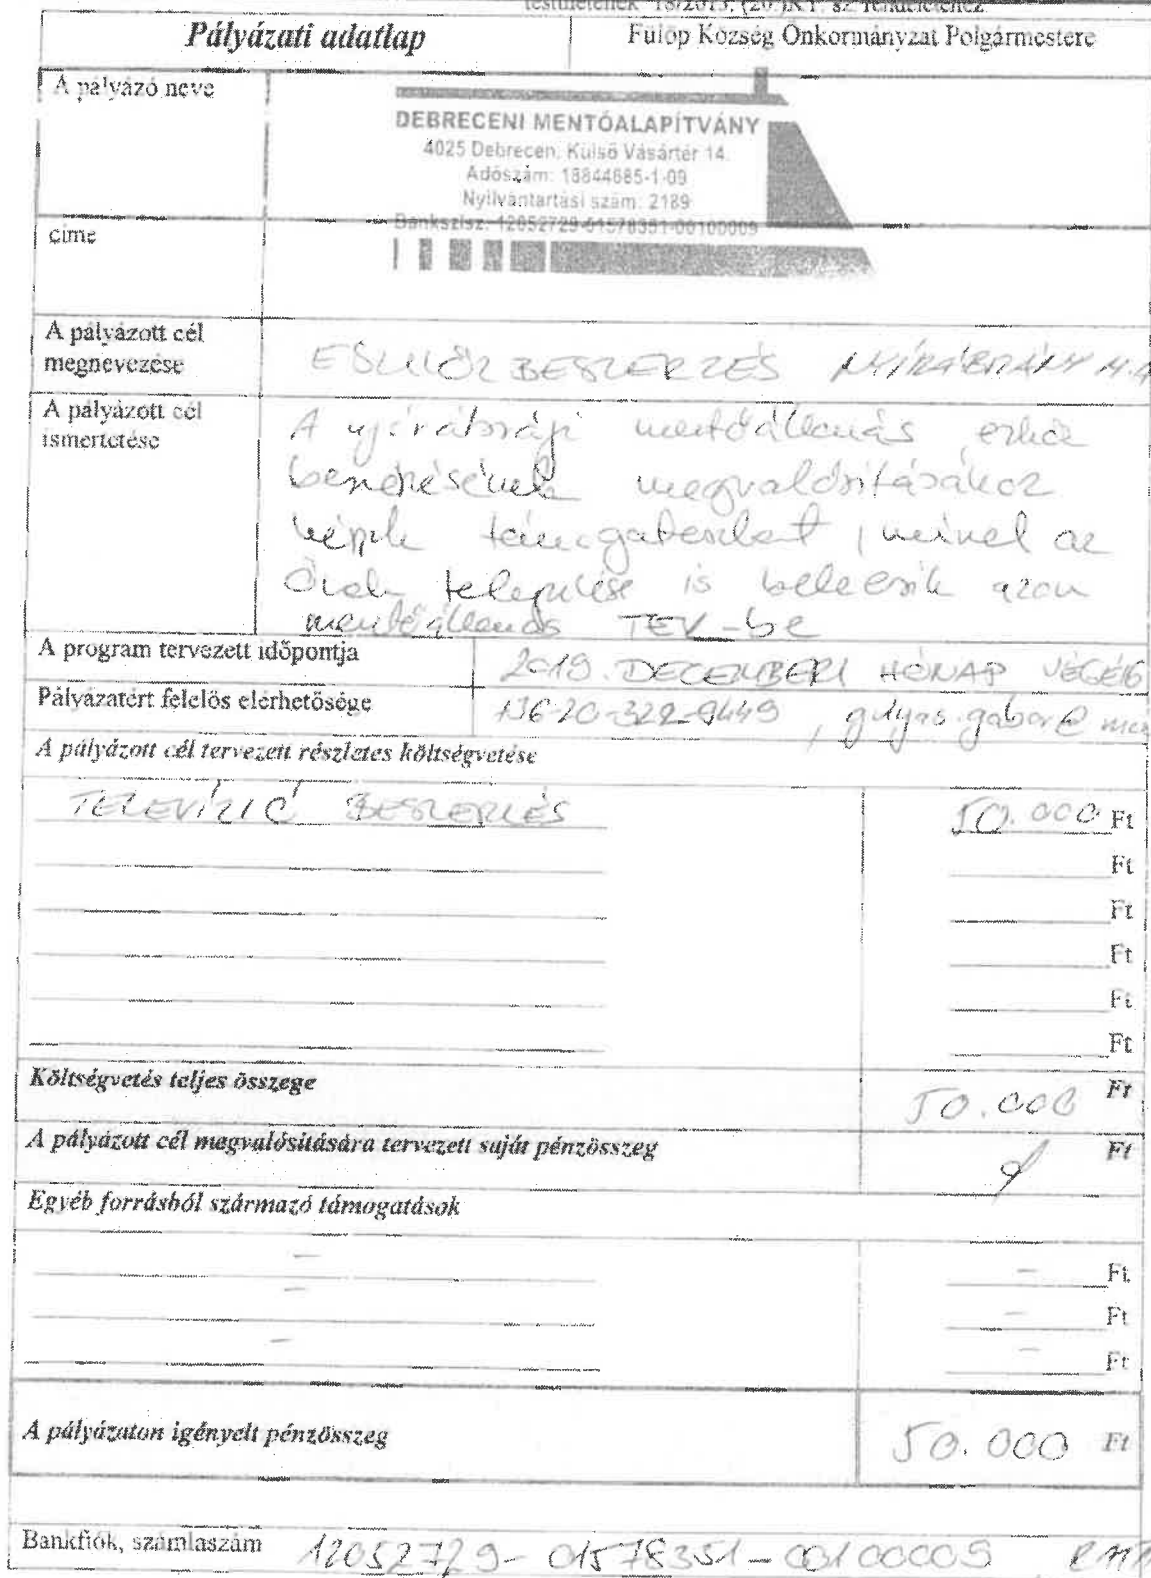 testületének 18/2013. (20.)KT. sz. rendeletéhez
Pályázati adatlap
Fülöp Község Önkormányzat Polgármestere
A pályázó neve
DEBRECENI MENTŐALAPÍTVÁNY
4025 Debrecen, Külső Vásártér 14.
Adószám: 18844685-1-09
Nyilvántartási szám: 2189
Bankszlsz: 12052729-01578351-00100009
címe
A pályázott cél
megnevezése
ESZKÖZ BESZERZÉS NYÍRÁBRÁNY M.Á
A pályázott cél
ismertetése
A mentőállomás
megvalósításához
kérjük támogatásukat, mivel az
Önök települése is beleesik azon
mentőállomás TEK-be
A program tervezett időpontja
2019. DECEMBERI HÓNAP VÉGÉIG
Pályázatért felelős elérhetősége
0620-322-9449, gulyas.gabor@
A pályázott cél tervezett részletes költségvetése
TELEVÍZIÓ BESZERZÉS 50.000 Ft
Ft
Ft
Ft
Ft
Ft
Költségvetés teljes összege 50.000 Ft
A pályázott cél megvalósítására tervezett saját pénzösszeg Ft
Egyéb forrásból származó támogatások
- - Ft
- - Ft
- - Ft
A pályázaton igényelt pénzösszeg 50.000 Ft
Bankfiók, számlaszám 12052729-01578351-00100009